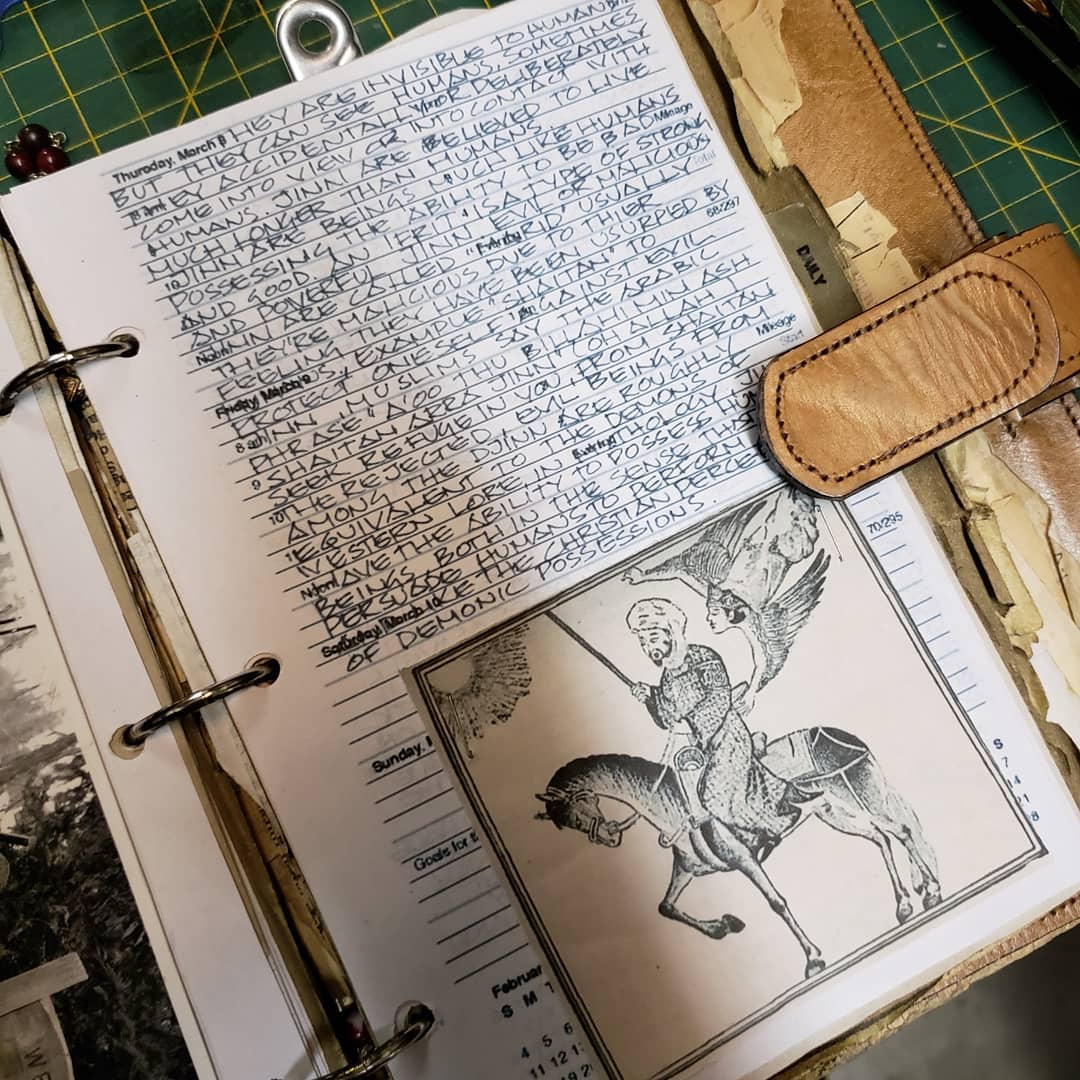 Thursday, March 8 THEY ARE INVISIBLE TO HUMAN
BUT THEY CAN SEE HUMANS, SOMETIMES
THEY ACCIDENTALLY OR DELIBERATELY
COME INTO VIEW OR INTO CONTACT WITH
HUMANS. JINN ARE BELIEVED TO LIVE
MUCH LONGER THAN HUMANS
JINN ARE BEINGS MUCH LIKE HUMANS
Mileage
POSSESSING THE ABILITY TO BE BAD
AND GOOD. AN IFRIT IS A TYPE OF STRONG
Total
AND POWERFUL JINN. EVIL OR MALICIOUS
JINN ARE CALLED RID USUALLY
Evening
58/297
THEY'RE MALICIOUS DUE TO THIER
Noon
FEELING THEY HAVE BEEN USURPED BY
Friday, March 9
PROTECT ONESELF AGAINST EVIL
JINN, MUSLIMS SAY THE ARABIC
8 am
PHRASE "A'OO THU BILLAHI MIN ASH
SHAITAN ARRA JINN" "OH ALLAH I
Mileage
9
SEEK REFUGE IN YOU, FROM SHAITAN
THE REJECTED EVIL BEINGS FROM
10
AMONG THE DJINN ARE ROUGHLY
EQUIVALENT TO THE DEMONS OF
WESTERN LORE IN
Evening
HAVE THE ABILITY TO POSSESS
Noon
BEINGS BOTH IN THE SENSE THAT
PERSUADE HUMANS TO PERFORM
LIKE THE CHRISTIAN
Saturday, March 10
OF DEMONIC POSSESSIONS
DAILY
70/295
Sunday,
Goals for
S
7
14
18
S M T
4 5 6
11 12